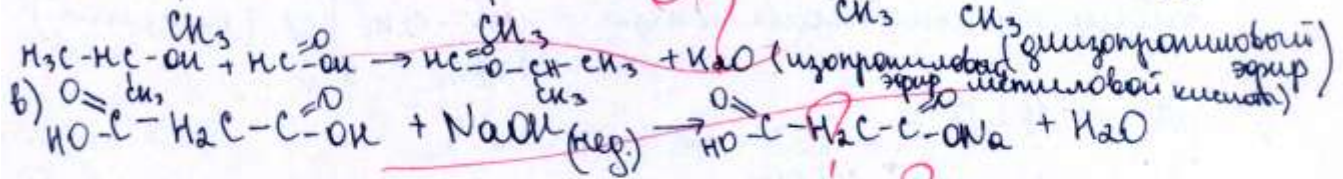 CH₃ CH₃ CH₃
H₃C-HC-OH + HC=O-OH → HC=O-O-CH-CH₃ + H₂O (изопропиловый эфир метиловой кислоты) (диизопропиловый эфир)
CH₃ CH₃
в) O=C-H₂C-C=O + NaOH (нед.) → O=C-H₂C-C=O + H₂O
HO OH HO ONa